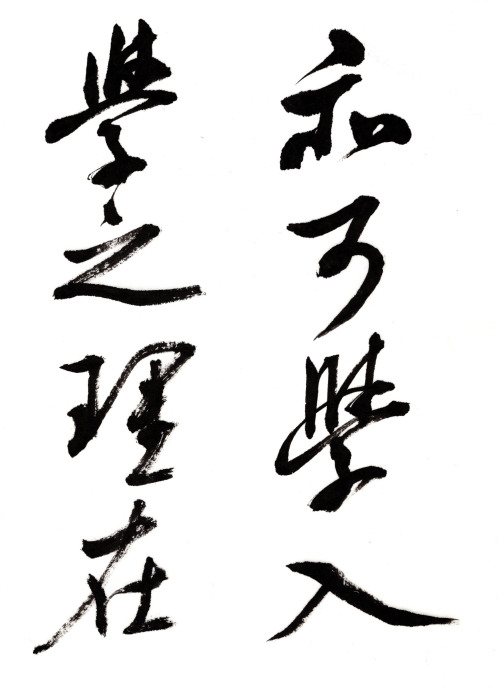 亦可學入
學之理在